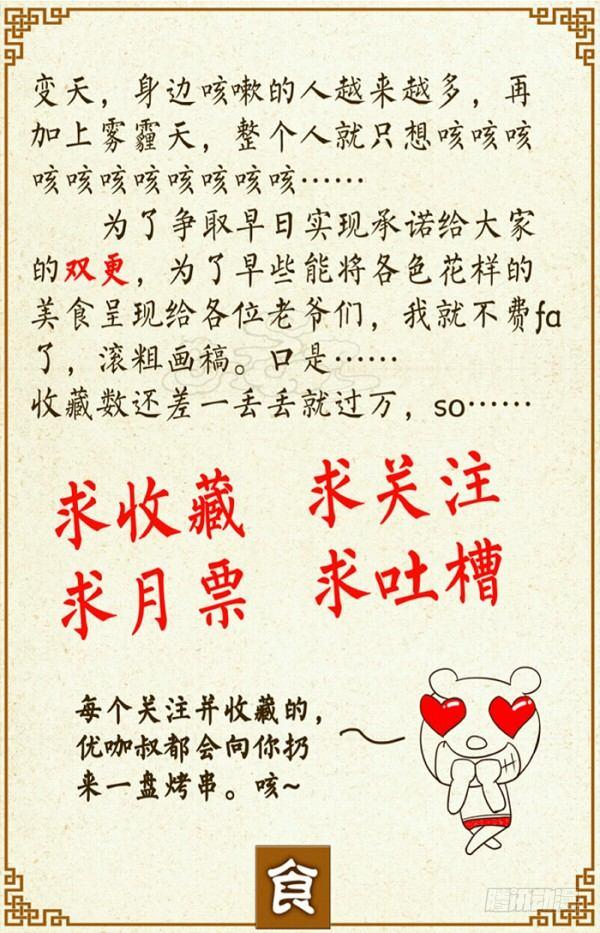 变天，身边咳嗽的人越来越多，再
加上雾霾天，整个人就只想咳咳咳
咳咳咳咳咳咳咳咳……
为了争取早日实现承诺给大家
的双更，为了早些能将各色花样的
美食呈现给各位老爷们，我就不费fa
了，滚粗画稿。口是……
收藏数还差一丢丢就过万，so……
求收藏 求关注
求月票 求吐槽
每个关注并收藏的，
优咖叔都会向你扔
来一盘烤串。咳~
食
腾讯动漫